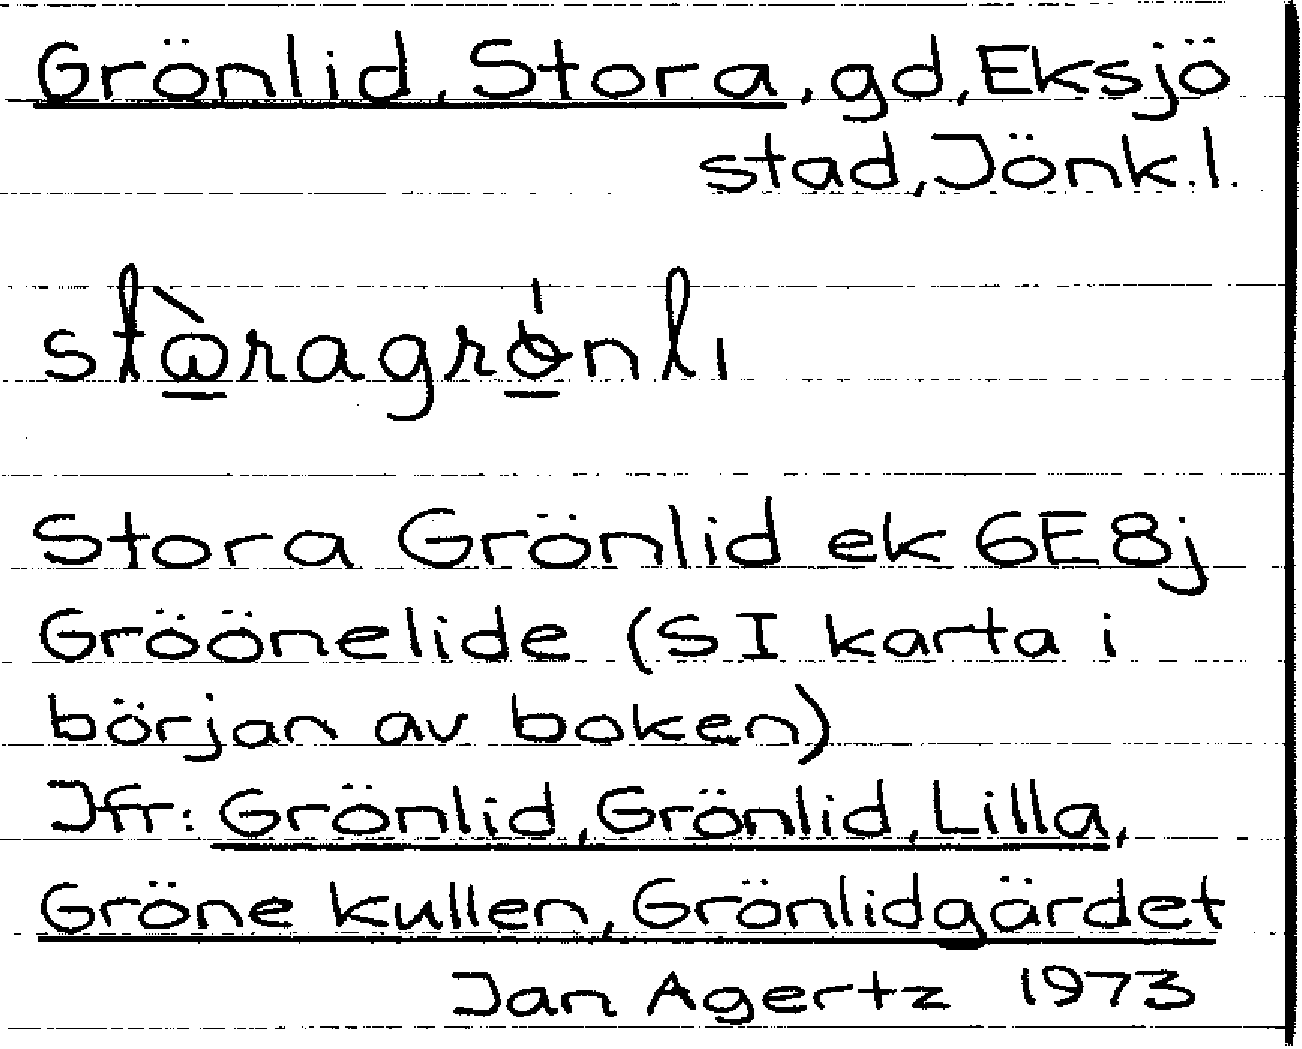 Grönlid, Stora, gd, Eksjö
stad, Jönk.l.
stàragrönli
Stora Grönlid ek 6E8j
Gröönelide (SI karta i
början av boken)
Jfr: Grönlid, Grönlid, Lilla,
Gröne kullen, Grönlidgärdet
Jan Agertz 1973